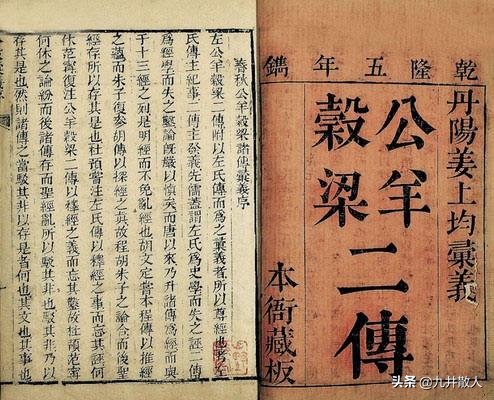 乾隆五年鐫
丹陽姜上均彙義
公羊
穀梁
二傳
本衙藏板
春秋公羊穀梁諸傳彙義序
左公羊穀梁二傳附以左氏傳而為之彙義者所以尊經也
左氏傳主紀事二傳主發義先儒蓋謂左氏為史學而失之誣二傳
為經學而失之鑿論既嚴以慎矣而唐以來乃升諸傳為經
于十三經之列是明經而不免亂經也胡文定嘗本程傳以推經
之蘊而朱子復參胡傳以探經之真故程胡朱子之論合而後聖
經存所以存其是也杜預嘗注左氏傳以釋經之事而忘其誣何
休范甯復注公羊穀梁二傳以釋經之義而忘其鑿故杜預范甯
何休之論紛而後諸傳存而聖經亂所以駁其非也駁其非以
存其是也然則諸傳之當駁其非以存是者何也其文也其事也
头条 @九井散人